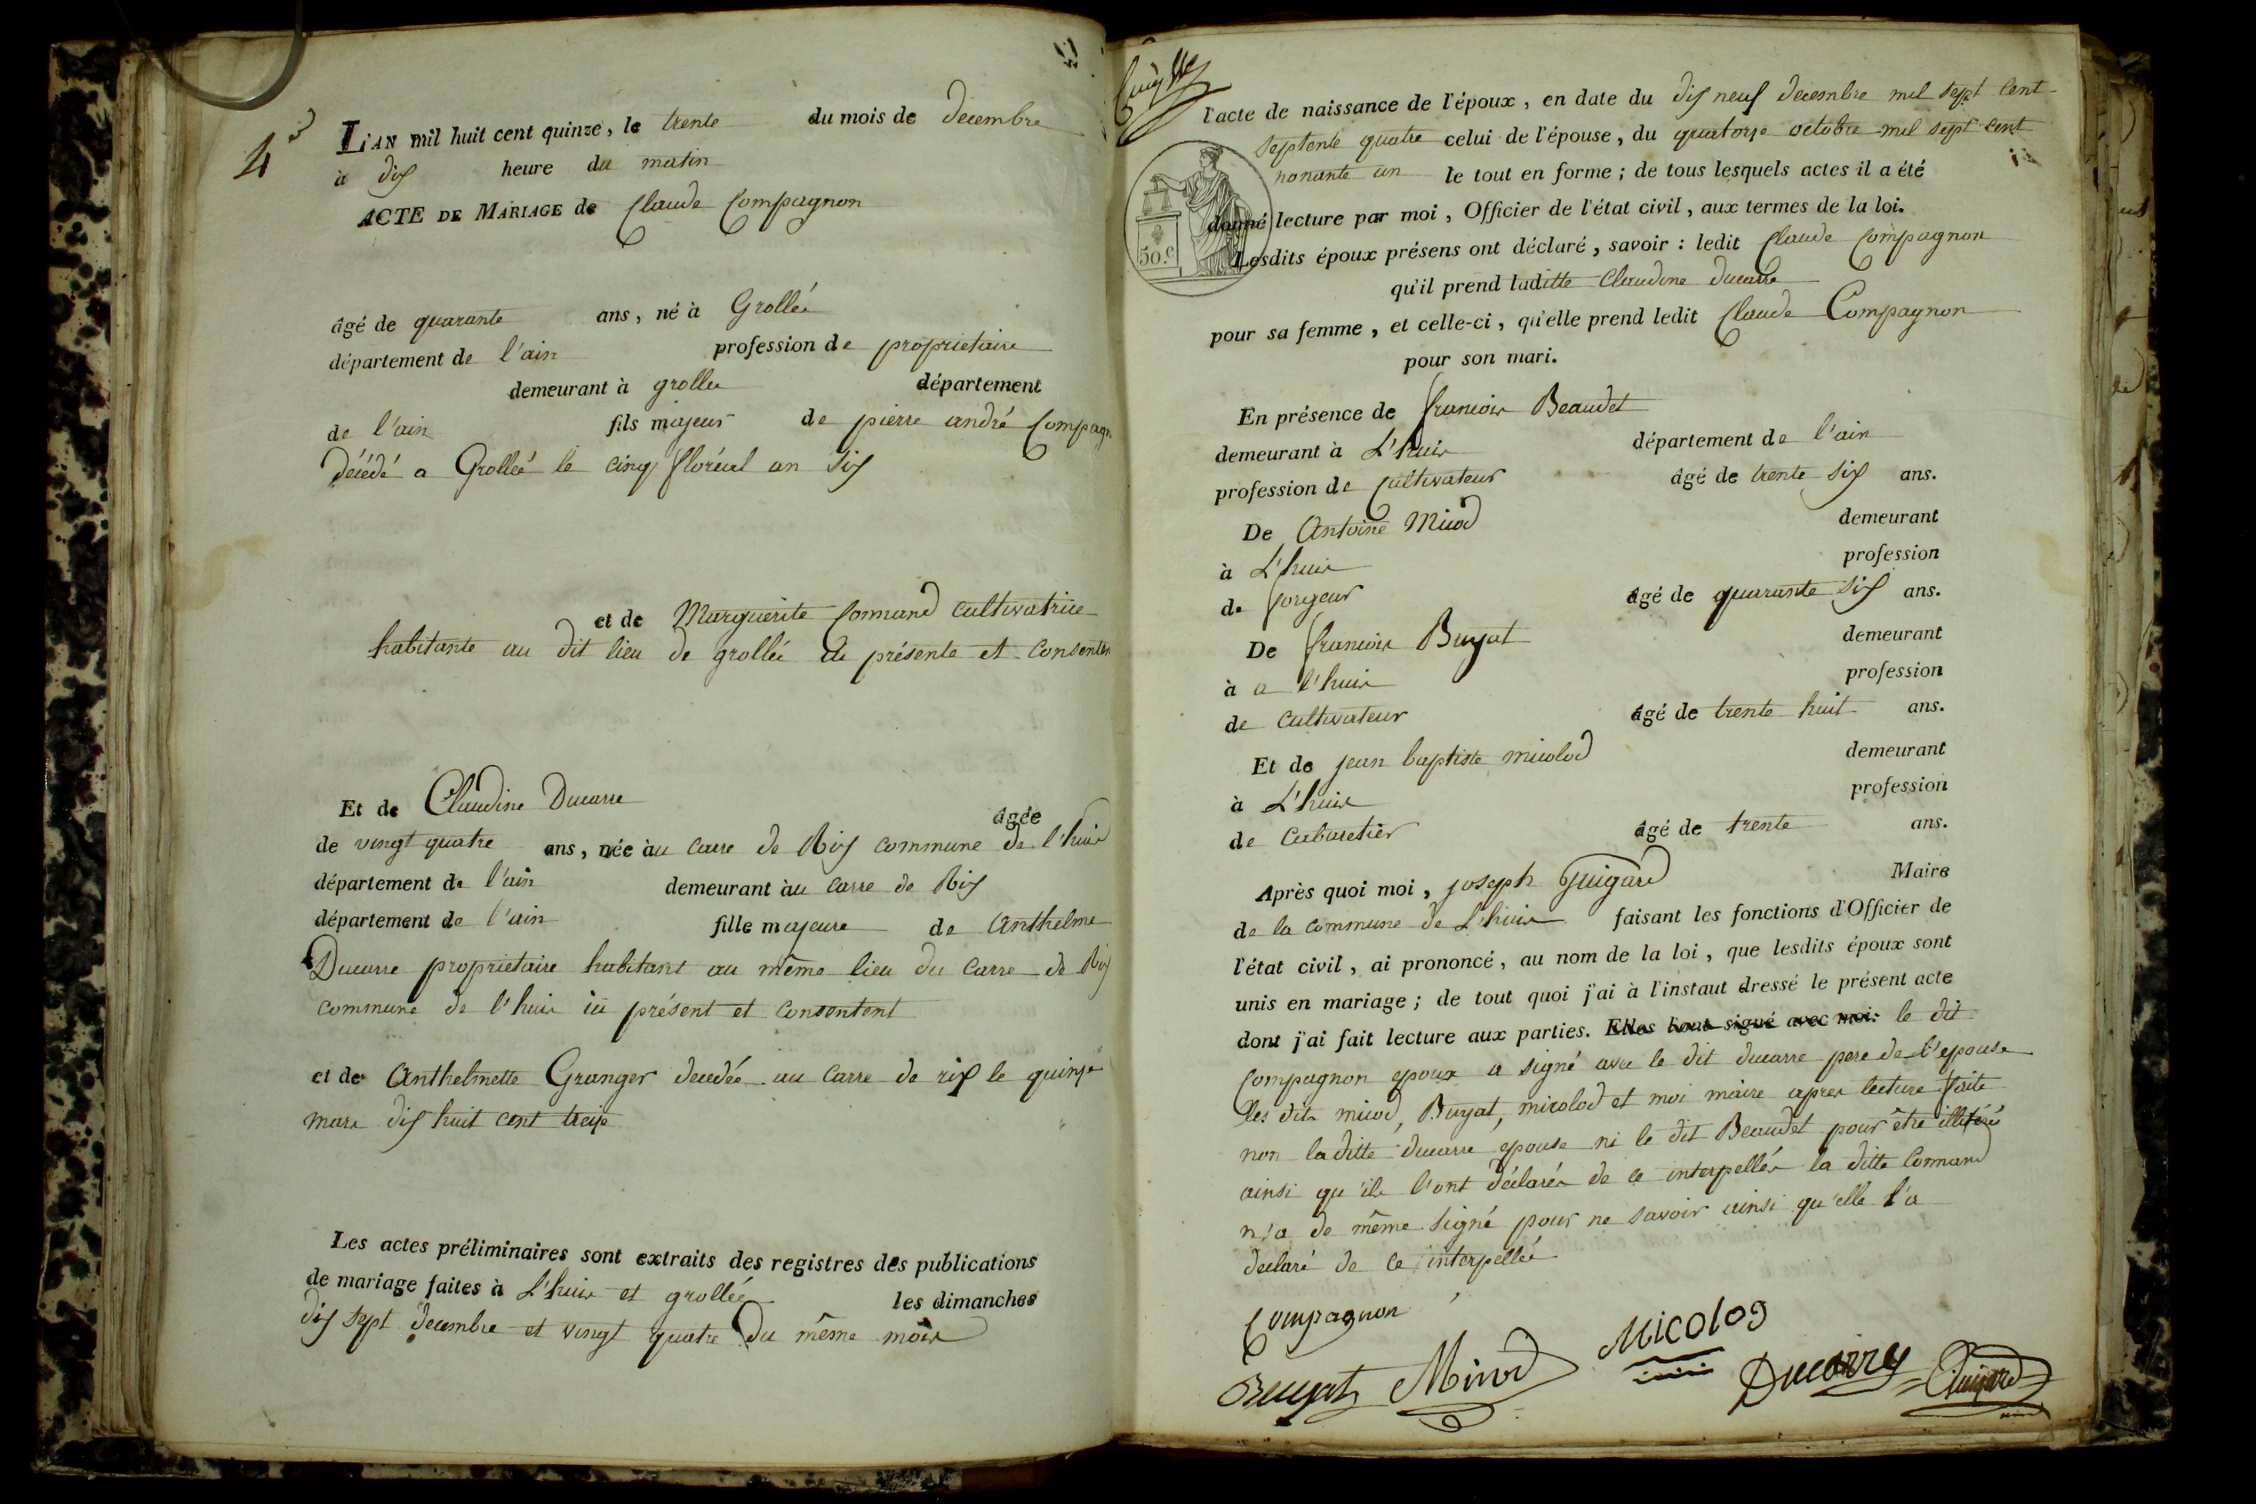 4
L'AN mil huit cent quinze, le trente du mois de decembre
à dix heure du matin
ACTE DE MARIAGE de Claude Compagnon
âgé de quarante ans, né à Grollée
département de l'ain profession de proprietaire
demeurant à grollée département
de l'ain fils majeur de pierre andré Compagn
décédé a Grolleé le cinq floréal an six
et de Marguerite Command cultivatrice
habitante au dit lieu de grollée présente et consenten
Et de Claudine Ducarre âgée
de vingt quatre ans, née àu carre de Rix commune de l'huis
département de l'ain demeurant àu carre de Rix
département de l'ain fille majeure de Anthelme
Ducarre proprietaire habitant au même lieu du Carre de Rix
commune de l'huis ici présent et consentent
et de Anthelmette Granger decedée au Carre de rix le quinze
mars dix huit cent treize
Les actes préliminaires sont extraits des registres des publications
de mariage faites à L'huis et grollée les dimanches
dix sept decembre et vingt quatre du même mois
l'acte de naissance de l'époux, en date du dix neuf decembre mil sept cent
septente quatre celui de l'épouse, du quatorze octobre mil sept cent
nonante un le tout en forme; de tous lesquels actes il a été
donné lecture par moi, Officier de l'état civil, aux termes de la loi.
50.c
Lesdits époux présens ont déclaré, savoir: ledit Claude Compagnon
qu'il prend laditte Claudine ducarre
pour sa femme, et celle-ci, qu'elle prend ledit Claude Compagnon
pour son mari.
En présence de francois Beaudet
demeurant à L'huis département de l'ain
profession de Cultivateur âgé de trente six ans.
De Antoine Micod demeurant
à L'huis profession
de forgeur âgé de quarante six ans.
De francois Buyat demeurant
à a l'huis profession
de cultivateur âgé de trente huit ans.
Et de jean baptiste micolod demeurant
à L'huis profession
de Cabaretier âgé de trente ans.
Après quoi moi, joseph Guigard Maire
de la commune de L'huis faisant les fonctions d'Officier de
l'état civil, ai prononcé, au nom de la loi, que lesdits époux sont
unis en mariage; de tout quoi j'ai à l'instaut dressé le présent acte
dont j'ai fait lecture aux parties. Elles l'ont signé avec moi. le dit
Compagnon epoux a signé avec le dit ducarre pere de l'epouse
les dits micod, Buyat, micolod et moi maire apres lecture faite
non la ditte ducarre epouse ni le dit Beaudet pour être illitérés
ainsi qu'ils l'ont déclarés de ce interpellés la ditte Command
n'a de même signé pour ne savoir ainsi qu'elle l'a
declaré de ce interpellée
Compagnon
Micolod
Buyat Micod Ducarre Guigard